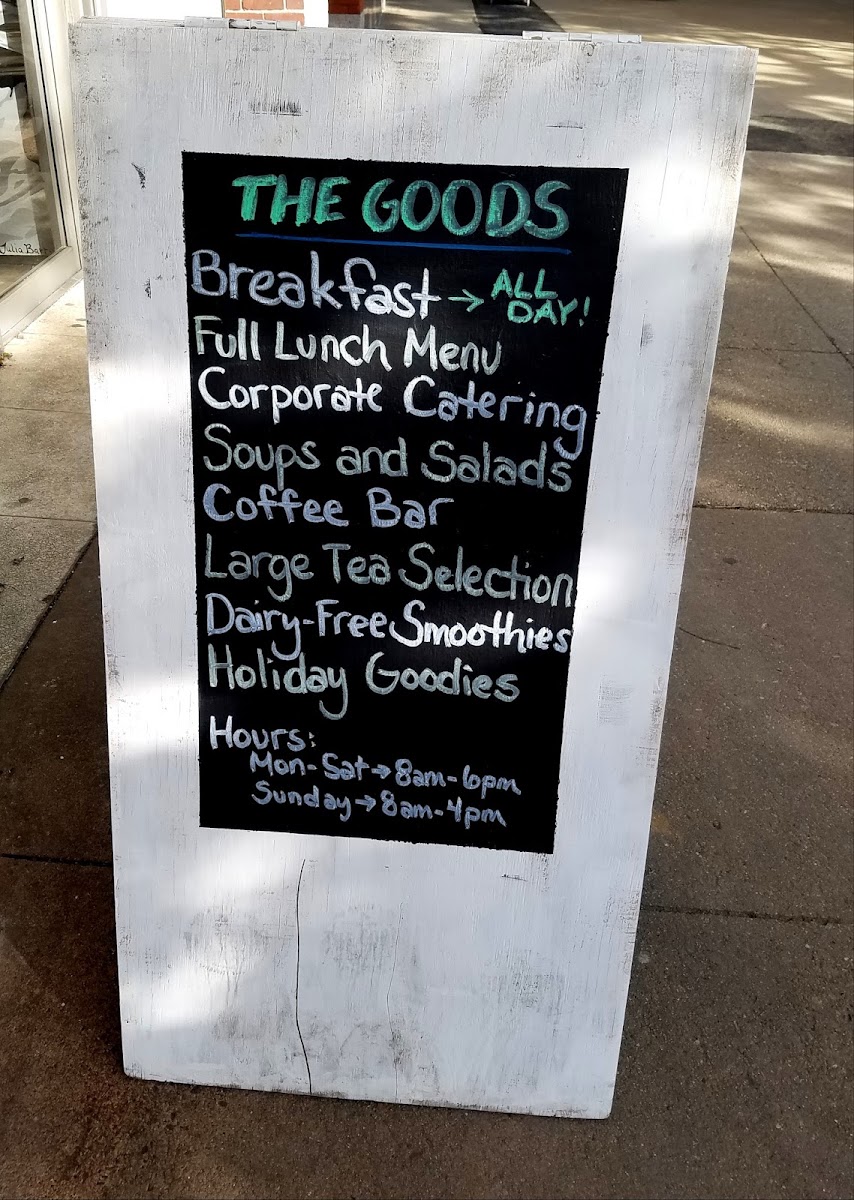 THE GOODS
Breakfast → ALL DAY!
Full Lunch Menu
Corporate Catering
Soups and Salads
Coffee Bar
Large Tea Selection
Dairy-Free Smoothies
Holiday Goodies
Hours:
Mon-Sat → 8am-6pm
Sunday → 8am-4pm